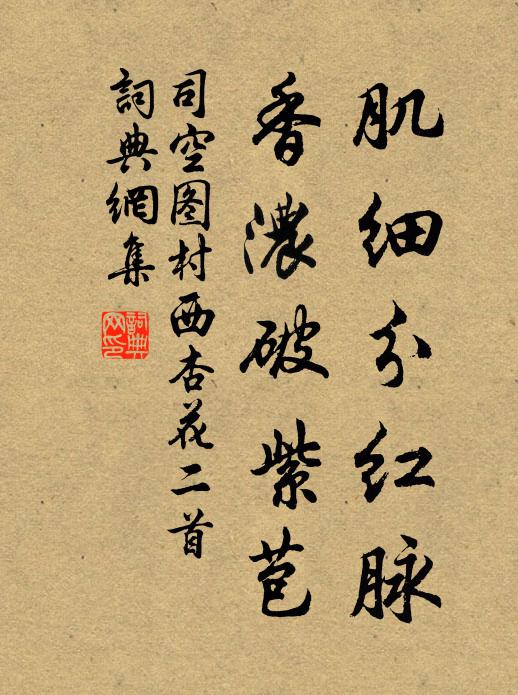 肌细分红脉
香濃破紫苞
司空图村西杏花二首
詞典網集
詞典
网印